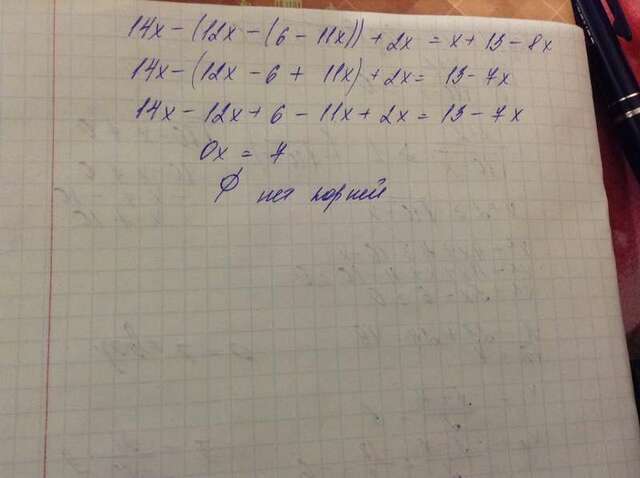 14x - (12x - (6 - 11x)) + 2x = x + 13 - 8x
14x - (12x - 6 + 11x) + 2x = 13 - 7x
14x - 12x + 6 - 11x + 2x = 13 - 7x
0x = 7
∅ нет корней